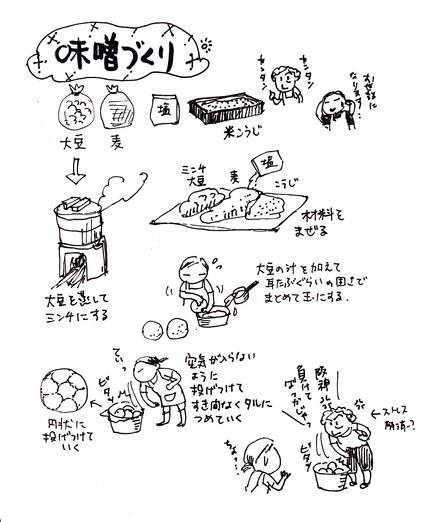 味噌づくり
カンタン
カンタン
おせわに
なります…
大豆
麦
塩
米こうじ
ミンチ
大豆
麦
塩
こうじ
材料を
まぜる
大豆を蒸して
ミンチにする
大豆の汁を加えて
耳たぶぐらいの固さで
まとめて玉にする.
てぃっ
ビタッ
空気が入らない
ように
投げつけて
すき間なくタルに
つめていく
円状に
投げつけて
いく
阪神
負けて
ばっかじゃー
ビタッ
ストレス
解消~?
ちょっ…